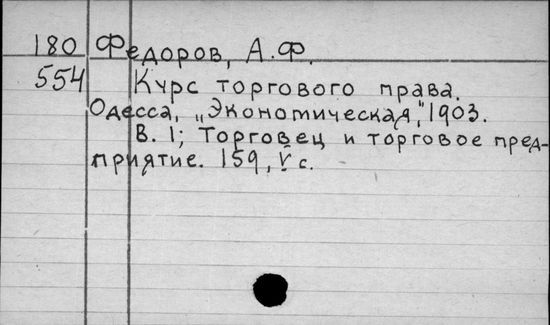 180 Федоров, А.Ф.
554 Курс торгового права.
Одесса, „Экономическая", 1903.
В. 1; Торговец и торговое пред-
приятие. 159, V с.